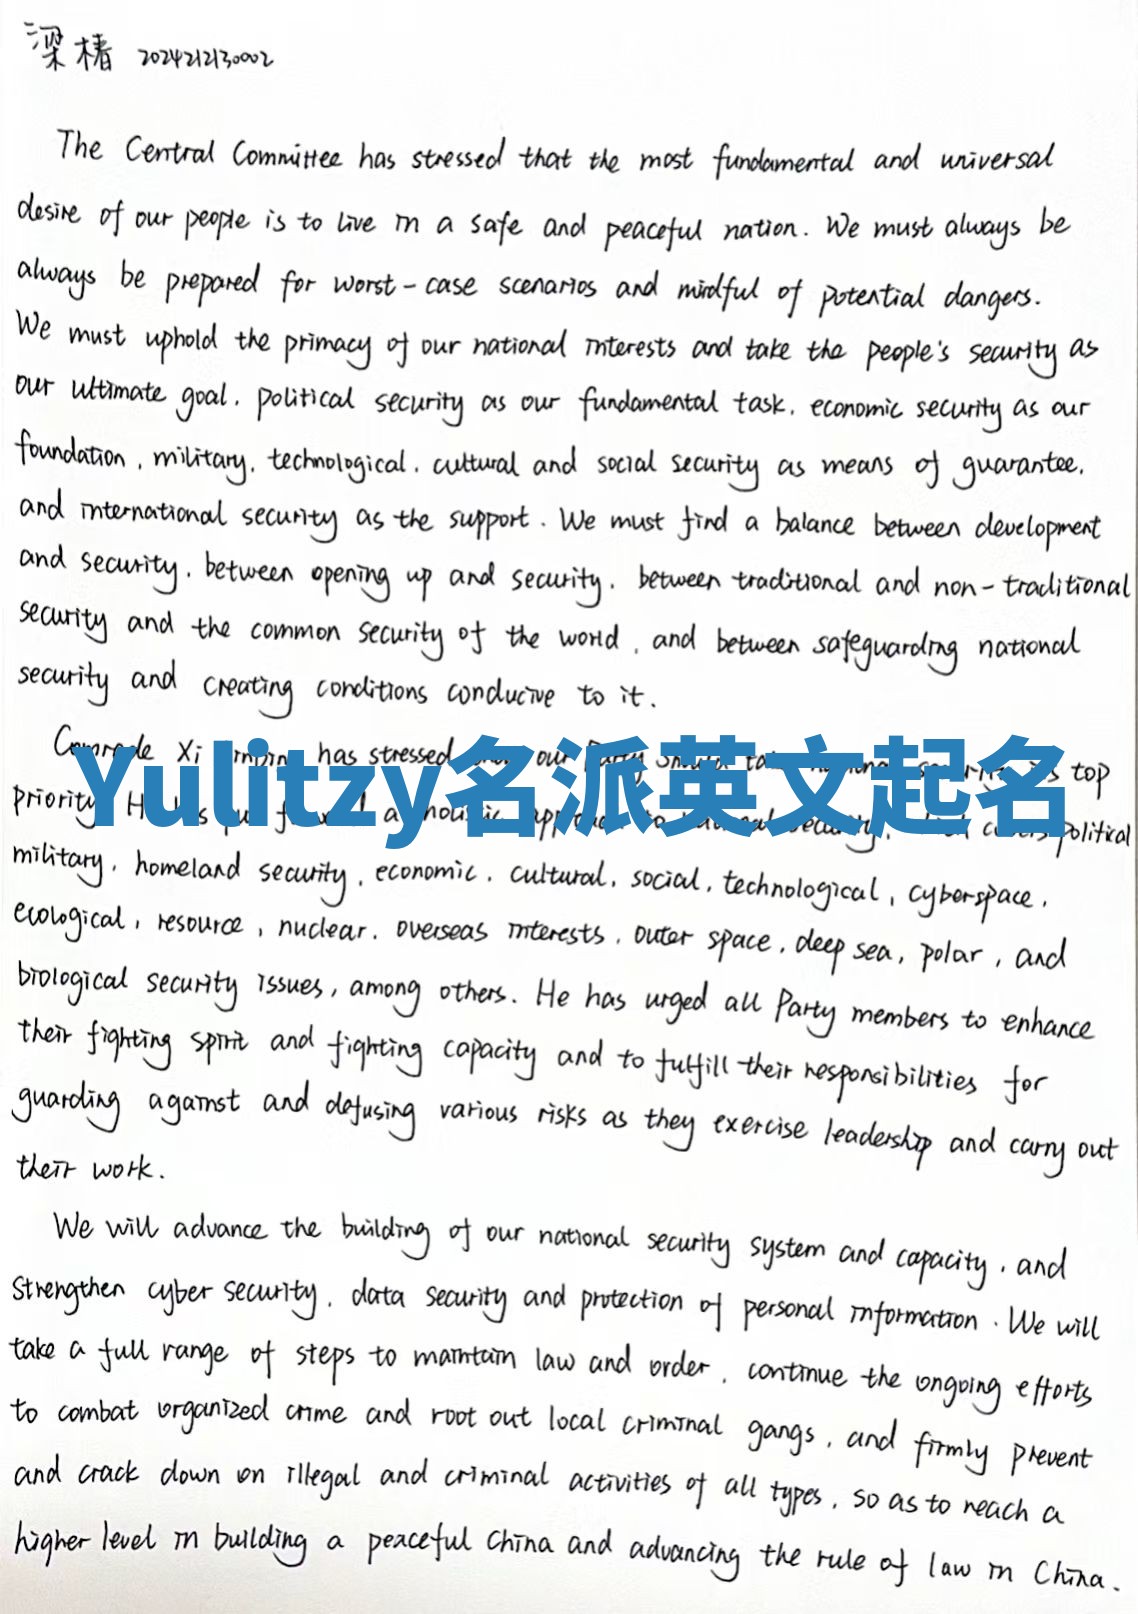 梁椿 2024212130002
The Central Committee has stressed that the most fundamental and universal
desire of our people is to live in a safe and peaceful nation. We must always be
always be prepared for worst-case scenarios and mindful of potential dangers.
We must uphold the primacy of our national interests and take the people's security as
our ultimate goal, political security as our fundamental task, economic security as our
foundation, military, technological, cultural and social security as means of guarantee,
and international security as the support. We must find a balance between development
and security, between opening up and security, between traditional and non-traditional
security and the common security of the world, and between safeguarding national
security and creating conditions conducive to it.
Comrade Xi has stressed our top
Yulitzy名派英文起名
priority. a to political
military, homeland security, economic, cultural, social, technological, cyberspace,
ecological, resource, nuclear, overseas interests, outer space, deep sea, polar, and
biological security issues, among others. He has urged all Party members to enhance
their fighting spirit and fighting capacity and to fulfill their responsibilities for
guarding against and defusing various risks as they exercise leadership and carry out
their work.
We will advance the building of our national security system and capacity, and
strengthen cyber security, data security and protection of personal information. We will
take a full range of steps to maintain law and order, continue the ongoing efforts
to combat organized crime and root out local criminal gangs, and firmly prevent
and crack down on illegal and criminal activities of all types, so as to reach a
higher level in building a peaceful China and advancing the rule of law in China.